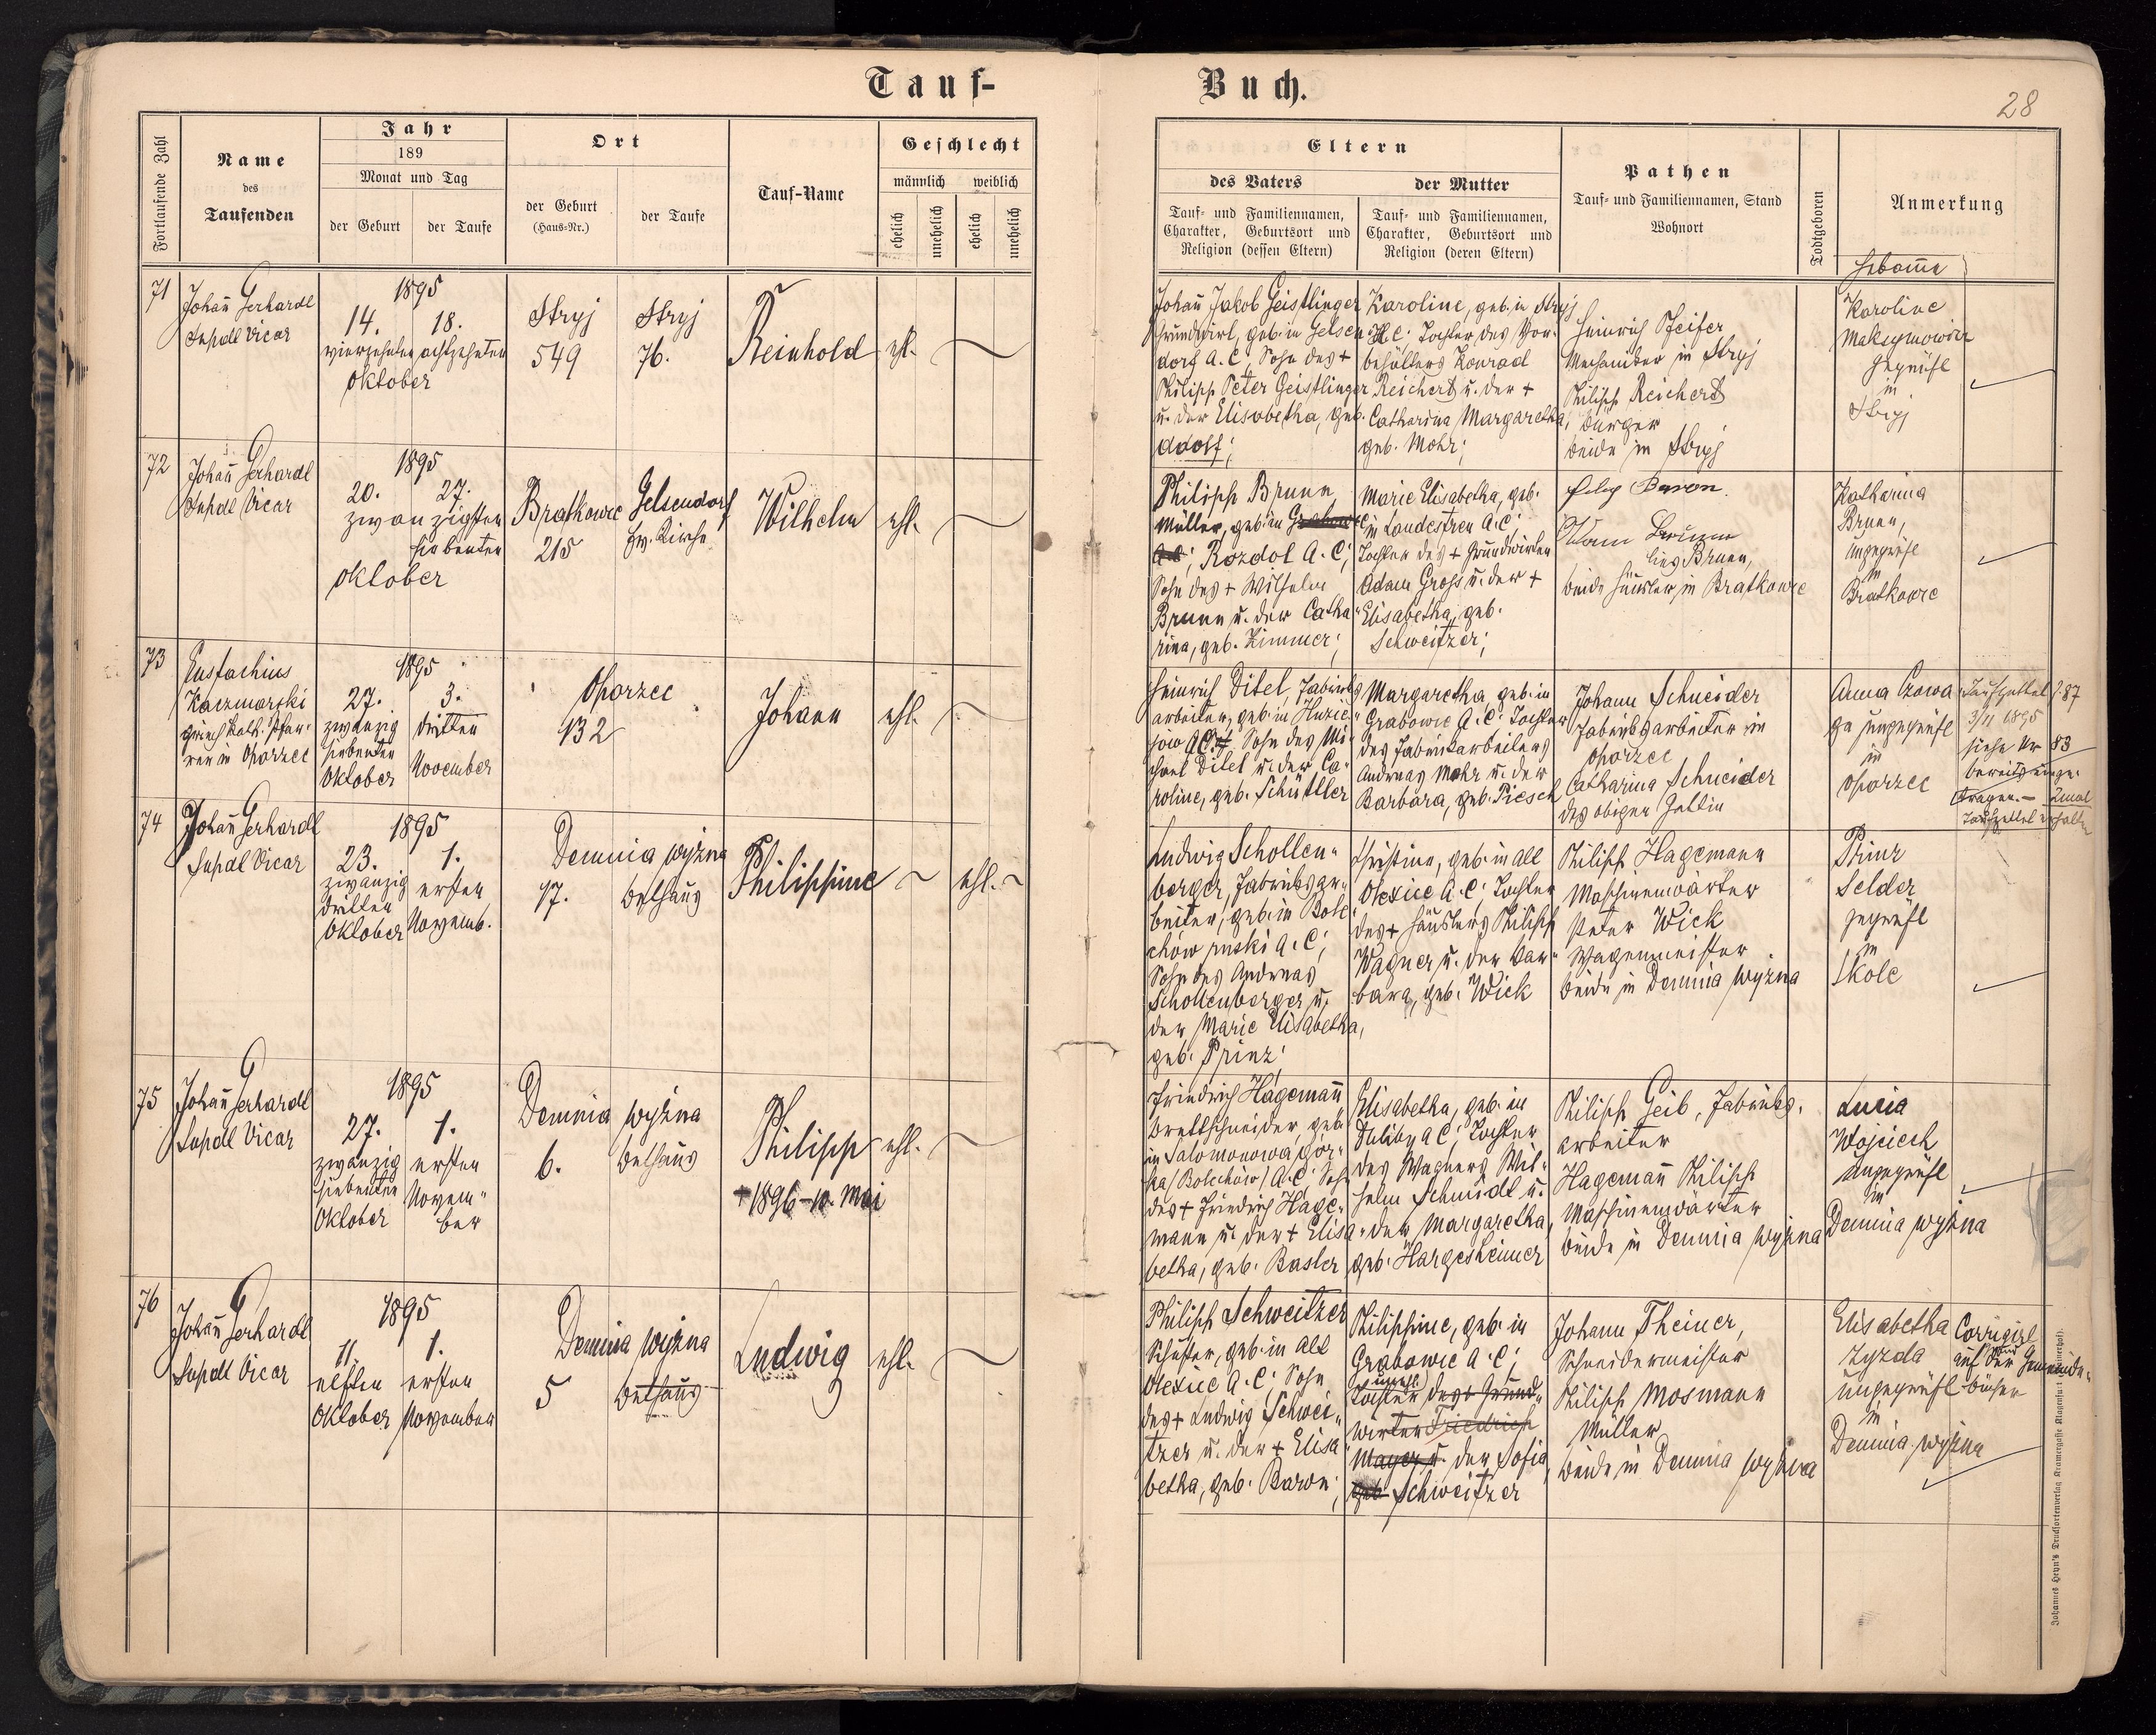 Tauf-
Buch.
28
Fortlaufende Zahl
Name
des
Taufenden
Jahr
189
Monat und Tag
der Geburt
der Taufe
Ort
der Geburt
(Haus-Nr.)
der Taufe
Tauf-Name
Geschlecht
männlich
weiblich
ehelich
unehelich
ehelich
unehelich
Eltern
des Vaters
Tauf- und Familiennamen,
Charakter, Geburtsort und
Religion (dessen Eltern)
der Mutter
Tauf- und Familiennamen,
Charakter, Geburtsort und
Religion (deren Eltern)
Pathen
Tauf- und Familiennamen, Stand
Wohnort
Todtgeboren
Anmerkung
Hebam̄e
71
Johan̄ Gerhardl
Supdl Vicar
1895
14. 18.
vierzehnten achtzehnten
Oktober
Stryj
549
Stryj
76.
Reinhold
ehl.
Johan̄ Jakob Geistlinger
Grundwirt, geb. in Gelsen
dorf A. C., Sohn des +
Philipp Peter Geistlinger
u. der Elisabetha, geb.
Adolf;
Karoline, geb. in Stryj
A. C; Tochter des Vor-
behälters Konrad
Reichert u. der +
Catharina Margaretha,
geb. Mohr;
Heinrich Pfeifer,
Mechaniker in Stryj
Philipp Reichert
Bürger
beide in Stryj
Karoline
Maksymowicz
geprüft
in
Stryj
72
Johan̄ Gerhardl
Supdl Vicar
1895
20. 27.
zwanzigsten
siebenten
Oktober
Bratkowce
215
Gelsendorf
Ev. Kirche
Wilhelm
ehl.
Philipp Brunn,
Müller, geb. in Grabowce
A.C; Rozdol A. C;
Sohn des + Wilhelm
Brunn u. der Catha
rina, geb. Zimmer;
Marie Elisabetha, geb.
in Landestreu A. C;
Tochter des + Grundwirten
Adam Gross u. der +
Elisabetha, geb.
Schweitzer;
Filip Baron.
Adam Brunn
lies Brunn,
beide Häusler in Bratkowce
Katharina
Brunn,
ungeprüft
in
Bratkowce
73
Eustachius
Kaczmarski
griech. kath. Pfar-
rer in Oporzec
1895
27. 3.
zwanzig
siebenten
Oktober
dritten
November
Oporzec
132
Johann
ehl.
Heinrich Ditel, Fabriks
arbeiter, geb. in Huzie
jow A. C., Sohn des Mi-
chael Ditel u. der Ca-
roline, geb. Schüttler
Margaretha, geb. in
Grabowce A. C. Tochter
des Fabriksarbeiters
Andreas Mohr u. der
Barbara, geb. Piesch
Johann Schneider
Fabriksarbeiter in
Oporzec
Catharina Schneider
des obigen Gattin
Anna Czowa
ga ungeprüft
in
Oporzec
Taufzettel f. 87
3/11 1895
siehe Nr 83
bereits einge-
tragen. — 2mal
Taufzettel erhalten
74
Johan̄ Gerhardl
Supdl Vicar
1895
23. 1.
zwanzig
dritten
Oktober
ersten
Novemb.
Demnia wyżna
17. Bethaus
Philippine
ehl.
Ludwig Schollen-
berger, Fabriksar-
beiter, geb. in Bole
chów ruski A. C;
Sohn des Andreas
Schollenberger u.
der Marie Elisabetha,
geb. Prinz;
Christine, geb. in Alt
Olexice A. C; Tochter
des + Häuslers Philipp
Wagner u. der Bar-
bara, geb. Wick
Philipp Hagemann
Maschinenwärter
Peter Wick
Wagenmeister
beide in Demnia wyżna
Prinz
Selder
geprüft
in
Skole
75
Johan̄ Gerhardl
Supdl Vicar
1895
27. 1.
zwanzig
siebenten
Oktober
ersten
Novem-
ber
Demnia wyżna
6. Bethaus
Philipp
+ 1896 – 10. Mai
ehl.
Friedrich Hageman̄
Brettschneider, geb.
in Salomonowa gór-
ka (Bolechów) A. C. Sohn
des + Friedrich Hage-
mann u. der + Elisa-
betha, geb. Basler
Elisabetha, geb. in
A C; Tochter
des Wagners Wil-
helm Schmidt u.
der Margaretha,
geb. Hargesheimer
Philipp Geib, Fabriks-
arbeiter
Hageman̄ Philipp
Maschinenwärter
beide in Demnia wyżna
Lucia
Wojciech
ungeprüft
in
Demnia wyżna
76
Johan̄ Gerhardl
Supdl Vicar
1895
11. 1.
elften ersten
Oktober November
Demnia wyżna
5 Bethaus
Ludwig
ehl.
Philipp Schweitzer
Schuster, geb. in Alt
Olexice A. C; Sohn
des + Ludwig Schwei-
tzer u. der + Elisa
betha, geb. Baron;
Philippine, geb. in
Grabowce A. C;
(unehl)
Tochter des + Grund-
wirten Friedrich
Mayer u. der Sofia,
geb Schweitzer
Johann Theiner,
Schneidermeister
Philipp Mosmann
Müller
beide in Demnia wyżna
Elisabetha
Zyzda
ungeprüft
in
Demnia wyżna
Corrigirt
auf der Gemeinde-
bücher
Johannes Heyn's Drucksortenverlag Kramergasse Klagenfurt